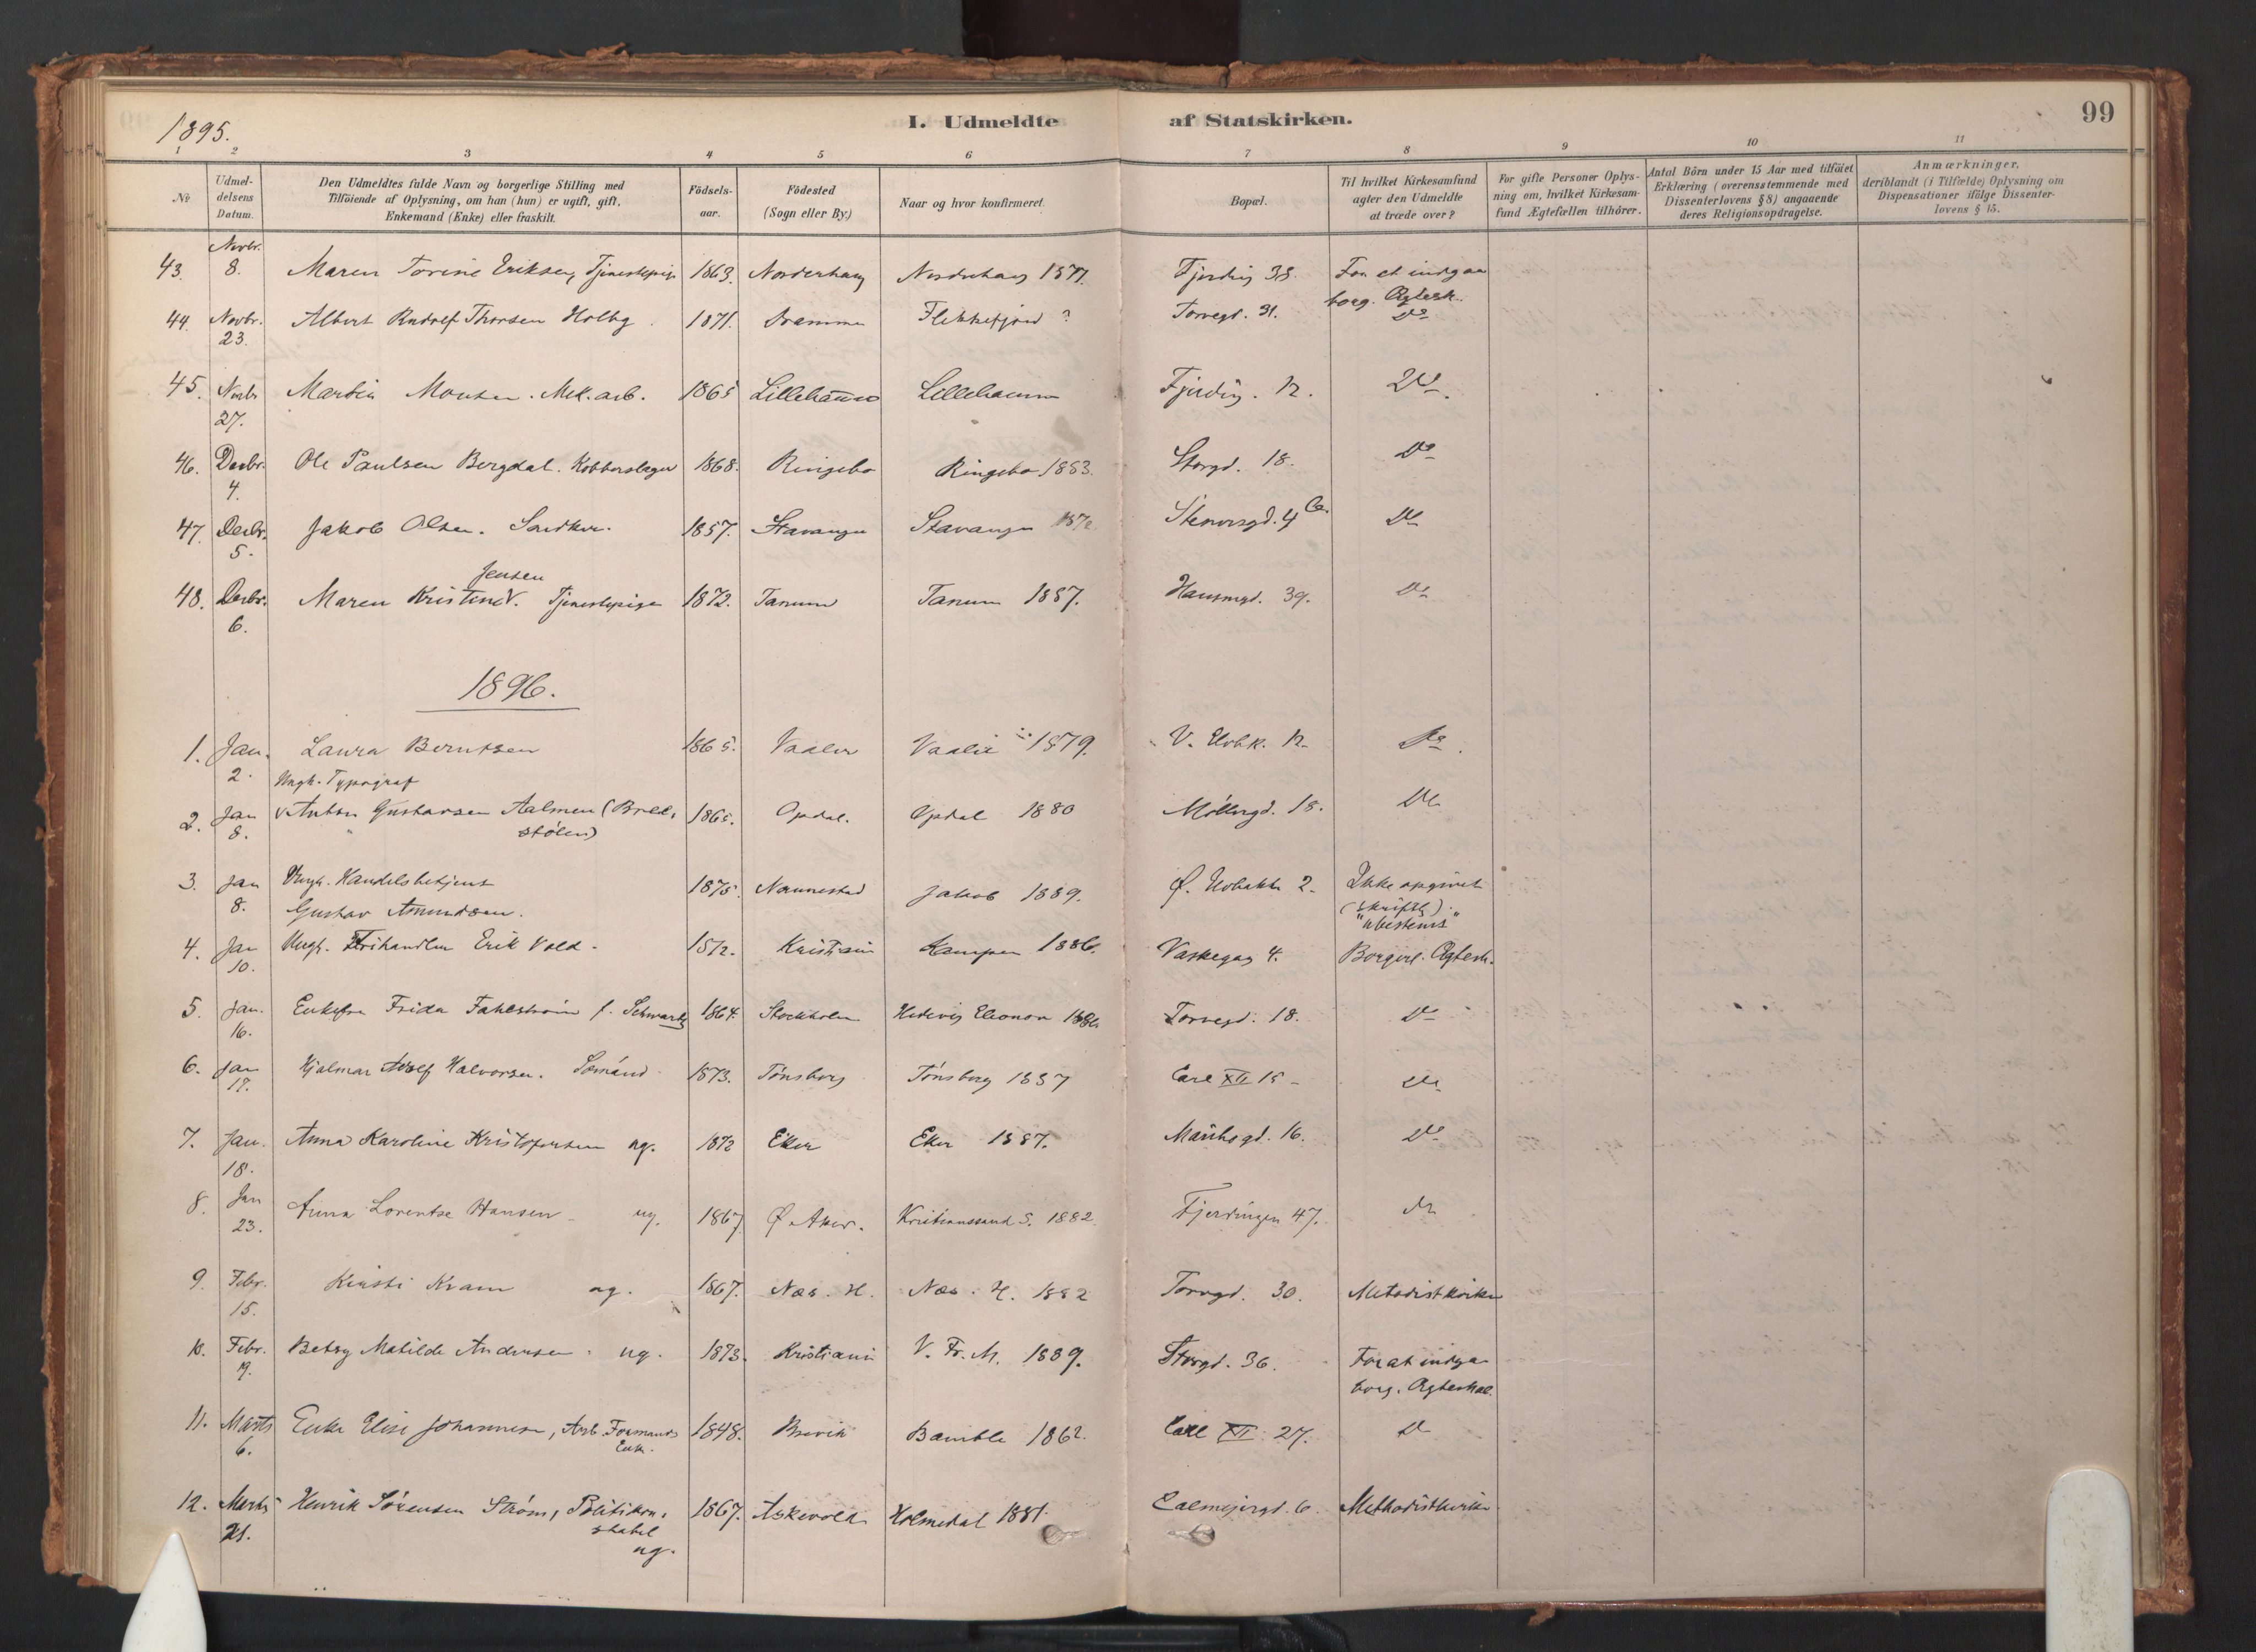 1895.
I. Udmeldte af Statskirken.
99
1 2 3 4 5 6 7 8 9 10 11
№
Udmeldelsens Datum.
Den Udmeldtes fulde Navn og borgerlige Stilling med
Tilföiende af Oplysning, om han (hun) er ugift, gift,
Enkemand (Enke) eller fraskilt.
Födselsaar.
Födested
(Sogn eller By.)
Naar og hvor konfirmeret.
Bopæl.
Til hvilket Kirkesamfund
agter den Udmeldte
at træde over?
For gifte Personer Oplysning om, hvilket Kirkesamfund Ægtefællen tilhörer.
Antal Börn under 15 Aar med tilföiet
Erklæring (overensstemmende med
Dissenterlovens § 8) angaaende
deres Religionsopdragelse.
Anmærkninger,
deriblandt (i Tilfælde) Oplysning om
Dispensationer ifölge Dissenterlovens § 15.
43. Novbr. 8. Maren Torine Eriksen, Tjenestepige 1863. Norderhaug Norderhaug 1877. Fjerding 38. For at indgaa
borg. Ægtesk.
44. Novbr. 23. Albert Rudolf Thorsen Holby. 1871. Drammen Flekkefjord ? Torvegd. 31. Do
45. Novbr 27. Martin Monsen. Mek. arb. 1865 Lillehammer Lillehammer Fjerding. 12. Do
46. Decbr. 4. Ole Paulsen Bergdal. Kobberslager 1868. Ringebo Ringebo 1883. Storgd. 18. Do
47. Decbr. 5. Jakob Olsen. 1857. Stavanger Stavanger Stenersgd. 4 Do
48. Decbr. 6. Maren Kristine Jensen. Tjenestepige 1872. Tanum Tanum 1887. Hausmgd. 39. Do
1896.
1. Jan. 2. Laura Berntsen 1865. Vaaler Vaaler 1879. V. Elvbk. 12. Do
2. Jan 8. Ungk. Typograf
Anton Gustavsen Aalmen (Bredestølen) 1865. Opdal. Opdal 1880 Möllergd. 18. Do
3. Jan 8. Ungk. Handelsbetjent
Gustav Amundsen. 1875 Nannestad Jakob 1889. Ø. Elvbakke 2. Ikke opgivet
(skriftlig).
"ubestemt"
4. Jan 10. Ungk. Frihandler Erik Vold. 1872. Kristiania Kampen 1886. Vaskegang 4. Borgerl. Ægtesk.
5. Jan. 16. Enkefru Frida Fahlström f. Schwartz 1864. Stockholm Hedevig Eleonora Torvegd. 18. Do
6. Jan 17. Hjalmar Adolf Halvorsen. Sömand. 1873. Tönsberg Tönsberg 1887 Carl XII 15 Do
7. Jan. 18. Anna Karoline Kristofersen ug. 1872 Eker Eker 1887. Maribogd. 16. Do
8. Jan 23. Anna Lorentse Hansen ug. 1867 Ø. Aker. Kristianssand S. 1882. Fjerdingen 47. Do
9. Febr. 15. Kristi Kvam ug. 1867. Næs. H. Næs. H. 1882 Torvegd. 30. Metodistkirken
10. Febr. 19. Betsy Matilde Andersen ug. 1873. Kristiania V. Fr. M. 1889. Storgd. 36. For at indgaa
borg. Ægteskab.
11. Marts 6. Enke Elise Johannesen, Arb. Formands Enke. 1848. Brevik Bamble 1862. Carl XII 27. Do
12. Marts 21. Henrik Sörensen Ström, Politikonstabel ug. 1867. Askevold Holmedal 1881. Calmeyersgd. 6. Methodistkirken